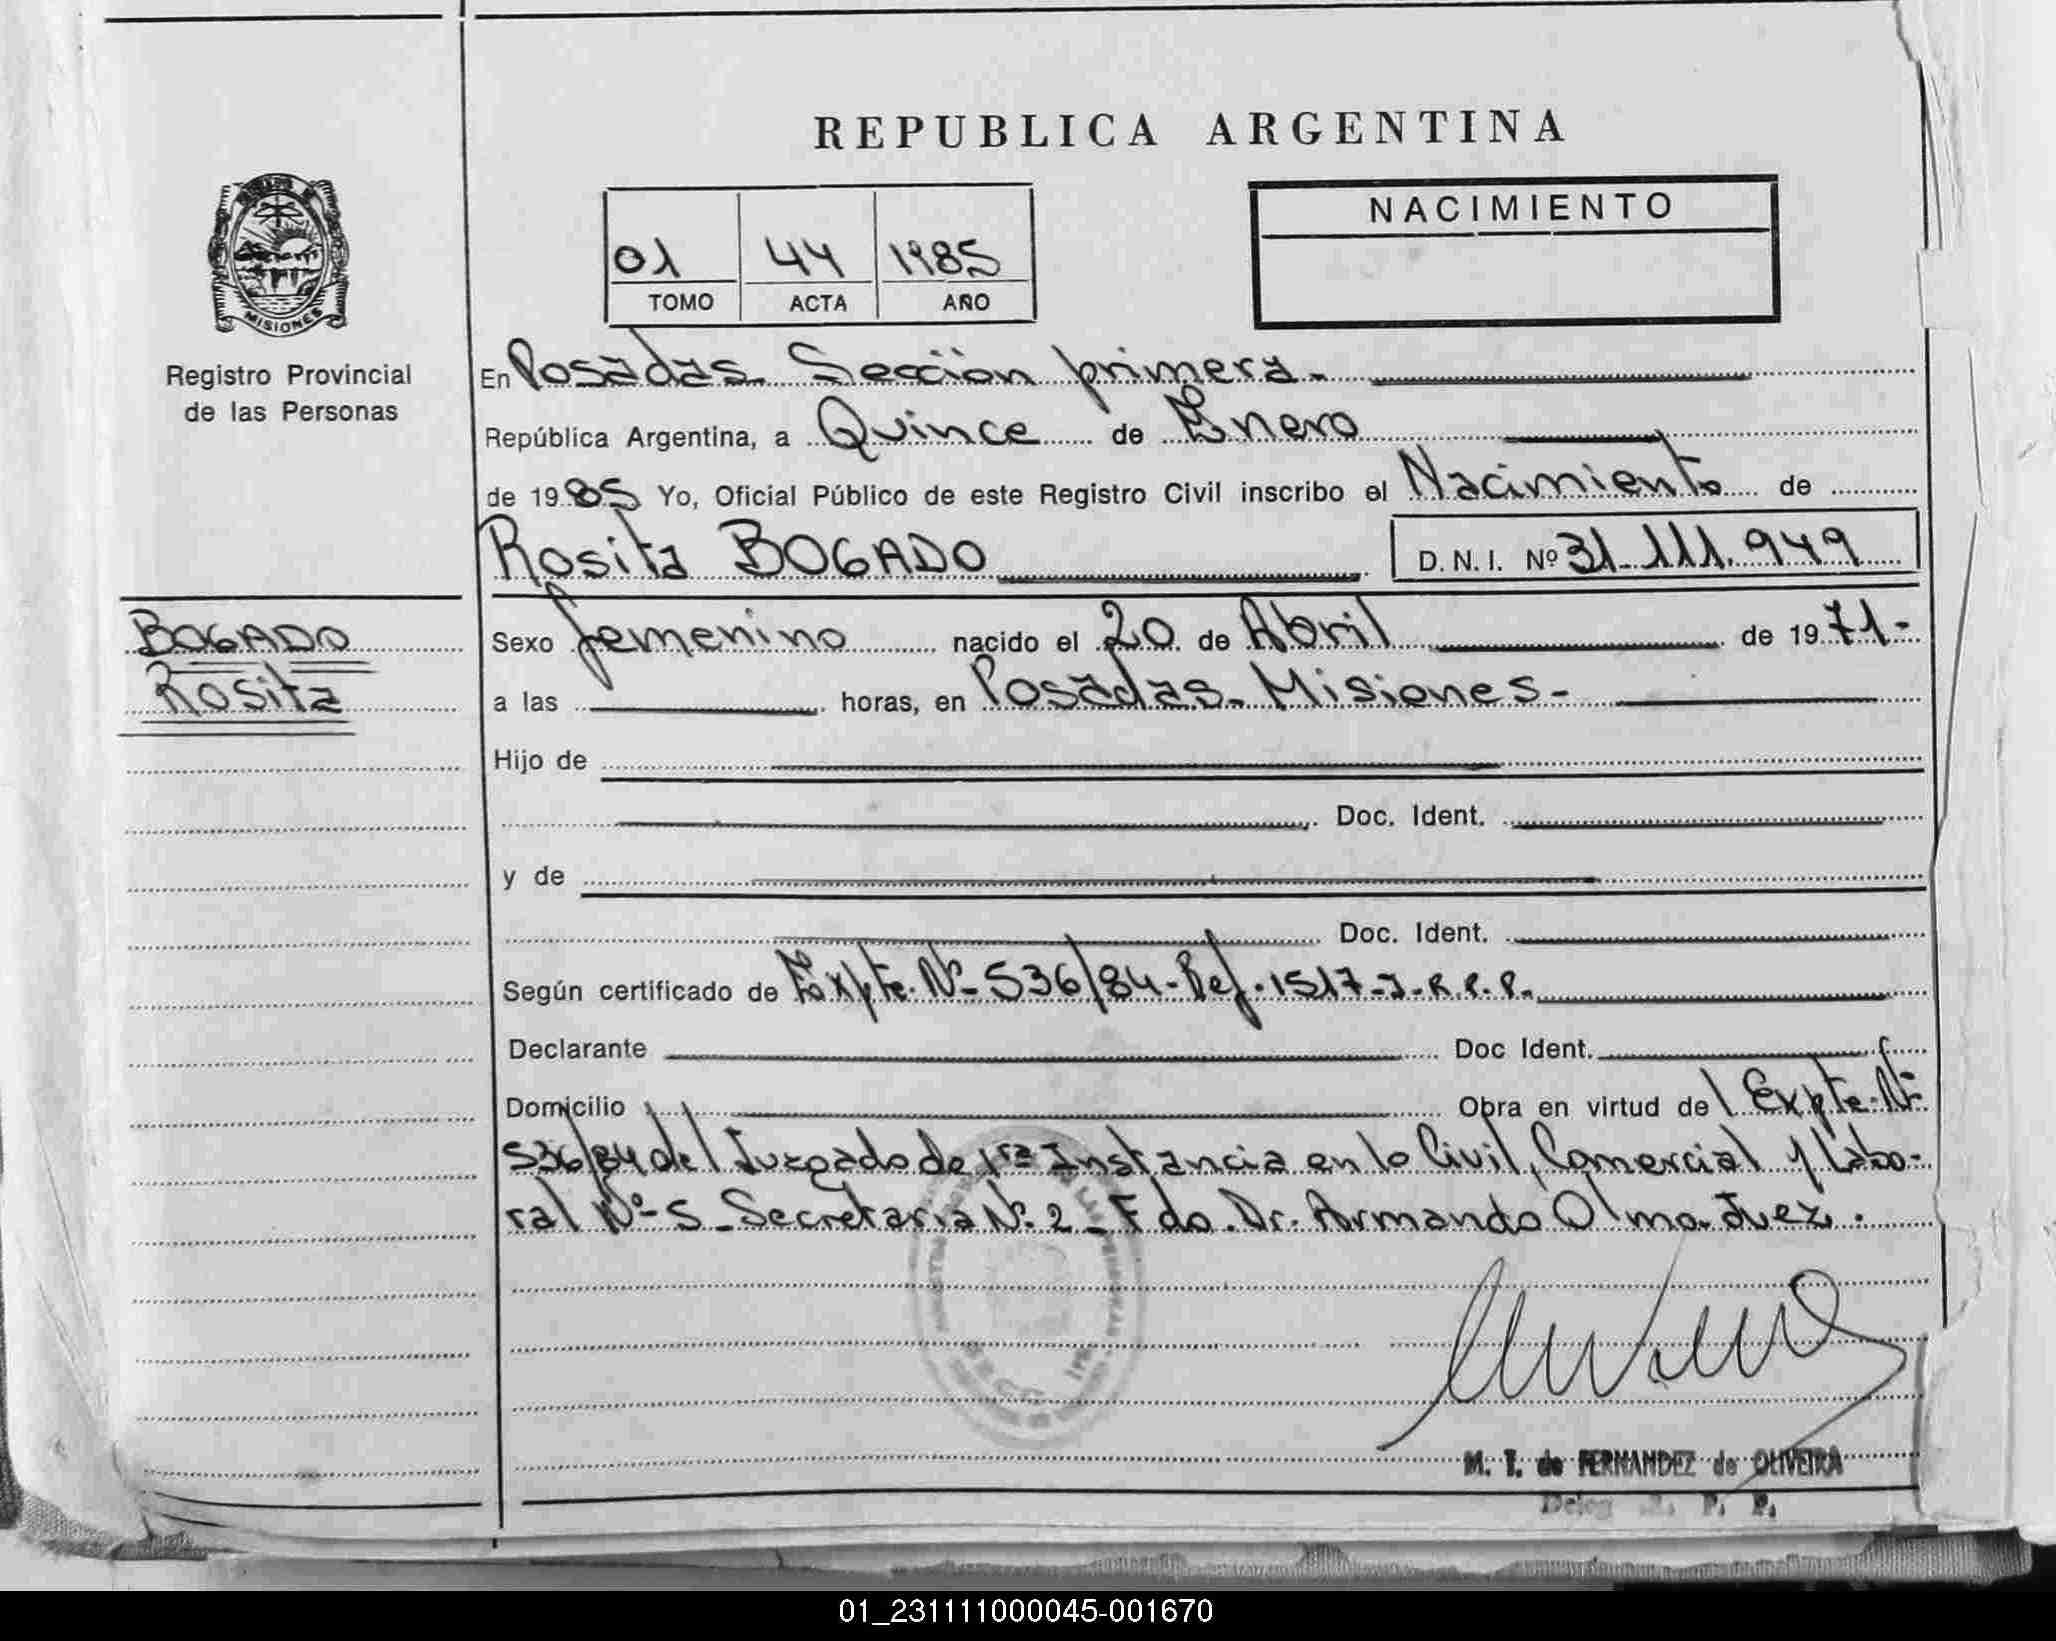 REPUBLICA ARGENTINA
01 44 1985
TOMO ACTA AÑO
NACIMIENTO
MISIONES
Registro Provincial
de las Personas
En Posadas. Sección primera.-
República Argentina, a Quince de Enero
de 1985 Yo, Oficial Público de este Registro Civil inscribo el Nacimiento de
Rosita BOGADO D. N. I. Nº 31.111.949
BOGADO
Rosita
Sexo femenino nacido el 20 de Abril de 1971-
a las horas, en Posadas. Misiones-
Hijo de
Doc. Ident.
y de
Doc. Ident.
Según certificado de Expte. Nº 536/84-Ref. 1517-J-R.P.P.
Declarante Doc Ident.
Domicilio Obra en virtud del Expte. Nº
536/84 del Juzgado de 1ra Instancia en lo Civil, Comercial y Labo-
ral Nº 5_Secretaria Nº 2_Fdo. Dr. Armando Olmo. Juez.
M. T. de FERNANDEZ de OLIVEIRA
Deleg R. P. P.
01_231111000045-001670